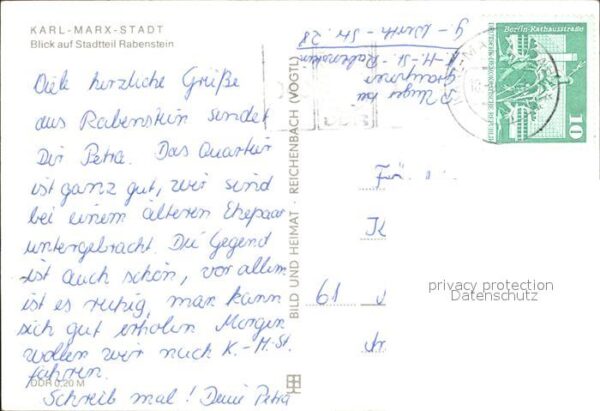 KARL-MARX-STADT
Blick auf Stadtteil Rabenstein
Viele herzliche Grüße
aus Rabenstein sendet
Dir Petra. Das Quartier
ist ganz gut, wir sind
bei einem älteren Ehepaar
untergebracht. Die Gegend
ist auch schön, vor allem
ist es ruhig, man kann
sich gut erholen. Morgen
wollen wir nach K.-M.-St.
fahren.
Schreib mal! Deine Petra
DDR 0,20 M
BILD UND HEIMAT · REICHENBACH (VOGTL)
bei
K.-M.-St.-Rabenstein
G.-Wirth-Str. 28
Berlin-Rathausstraße
DEUTSCHE DEMOKRATISCHE REPUBLIK
10
61
privacy protection
Datenschutz